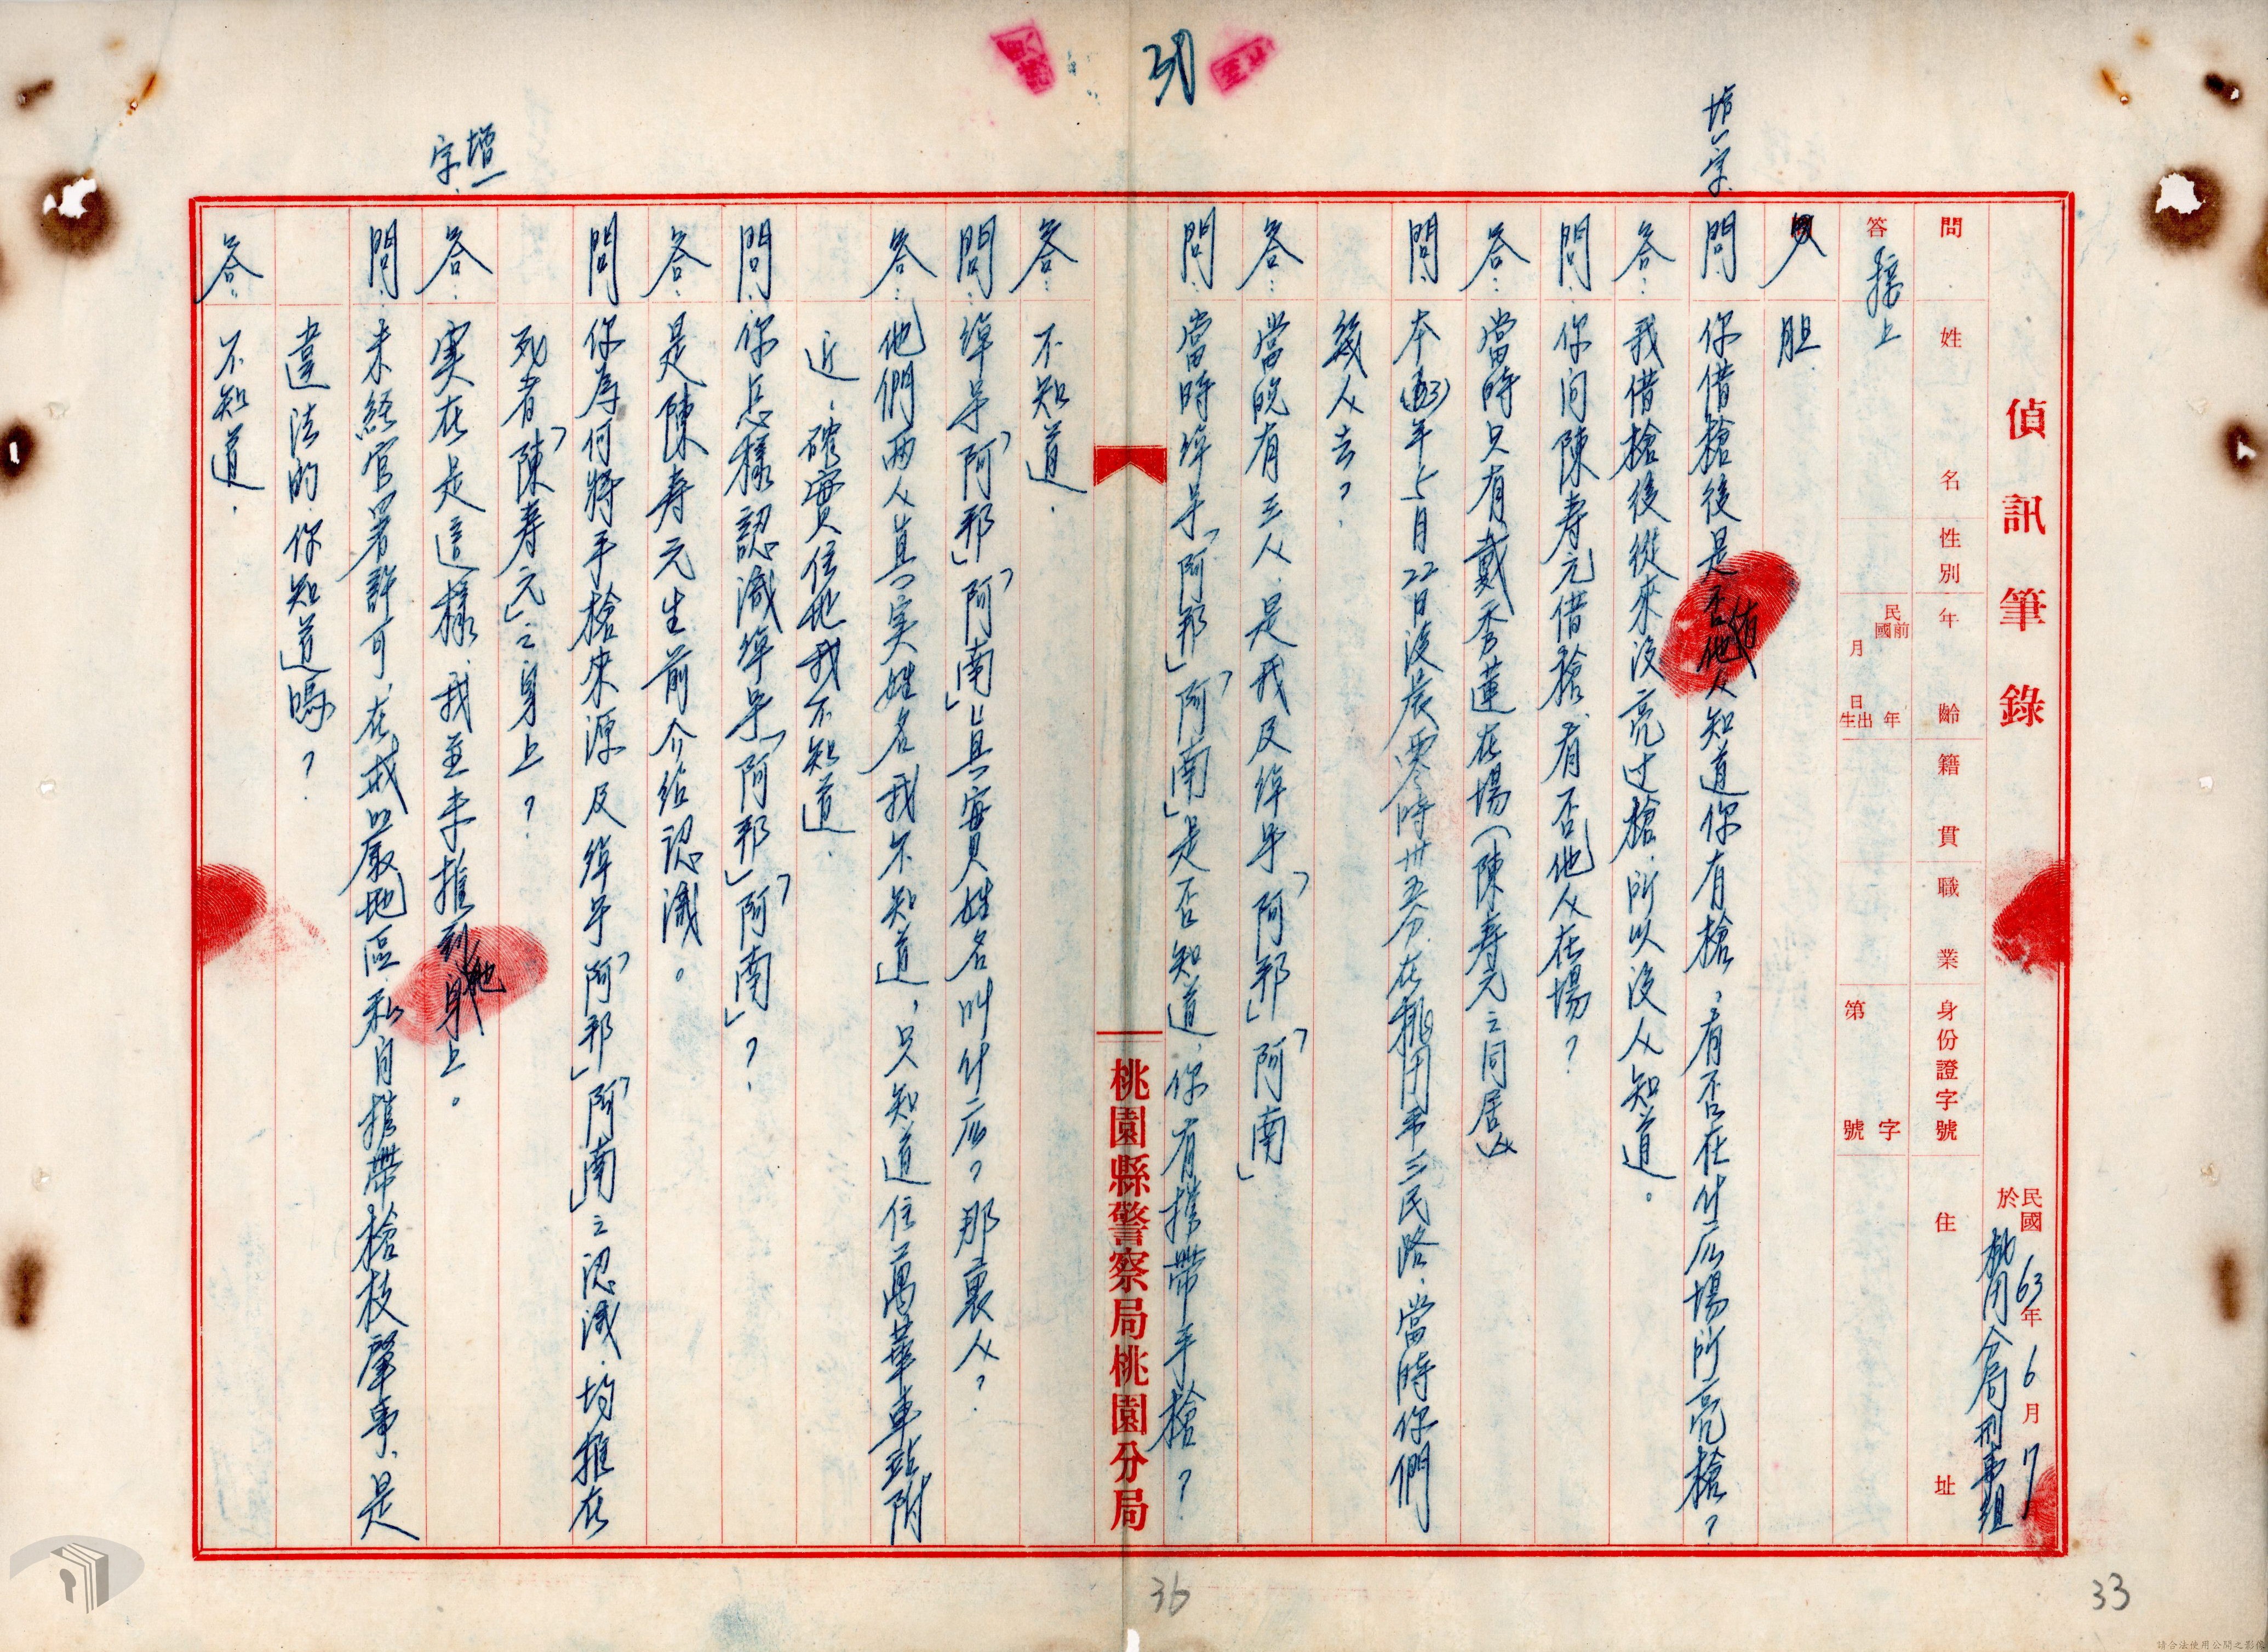 偵訊筆錄
民國63年6月7日
於桃園分局刑事組
問 姓名 性別 年齡 籍貫 職業 身份證字號 住址
答 接上 民國前 年 月 日出生 第 字 號
胆
增一字
問：你借槍後是否有他人知道你有槍，有否在什広場所亮槍？
答：我借槍後從來沒亮过槍，所以沒人知道。
問：你向陳寿元借槍，有否他人在場？
答：當時只有戴秀蓮在場（陳寿元之同居人）
問：本（63）年5月22日凌晨零時卅五分在桃園市三民路，當時你們
幾人去？
答：當晚有三人，是我及綽号「阿邦」「阿南」
問：當時綽号「阿邦」「阿南」是否知道，你有携帶手槍？
桃園縣警察局桃園分局
答：不知道。
問：綽号「阿邦」「阿南」真實姓名叫什広？那裏人？
答：他們兩人真实姓名我不知道，只知道住萬華車站附
近，確實住地我不知道。
問：你怎樣認識綽号「阿邦」「阿南」？
答：是陳寿元生前介绍認識。
問：你為何將手槍來源及綽号「阿邦」「阿南」之認識，均推在
死者「陳寿元」之身上？
增一字
答：実在是這樣，我並未推到他身上。
問：未経官署許可，在戒严地區，私自携帶槍枝肇事，是
違法的，你知道嗎？
答：不知道。
36
33
請合法使用公開之影像